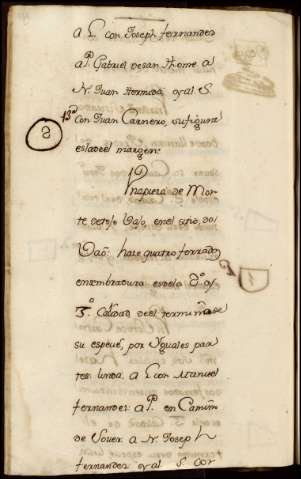 a L. con Joseph fernandez
a P. Gabriel de san thome a
N. Juan Hermida, y al S.
con Juan Carnero, su figura
es la del margen.
Una pieza de Mon-
te de tojo bajo, en el sitio, do
hace quatro ferrados
en sembradura es de la
3.ª Calidad de el termino, y de
su especie, por Yguales par
tes: linda, a L. con Manuel
fernandez a P. en Camino
de Souer a N. Joseph
fernandez y al S. con